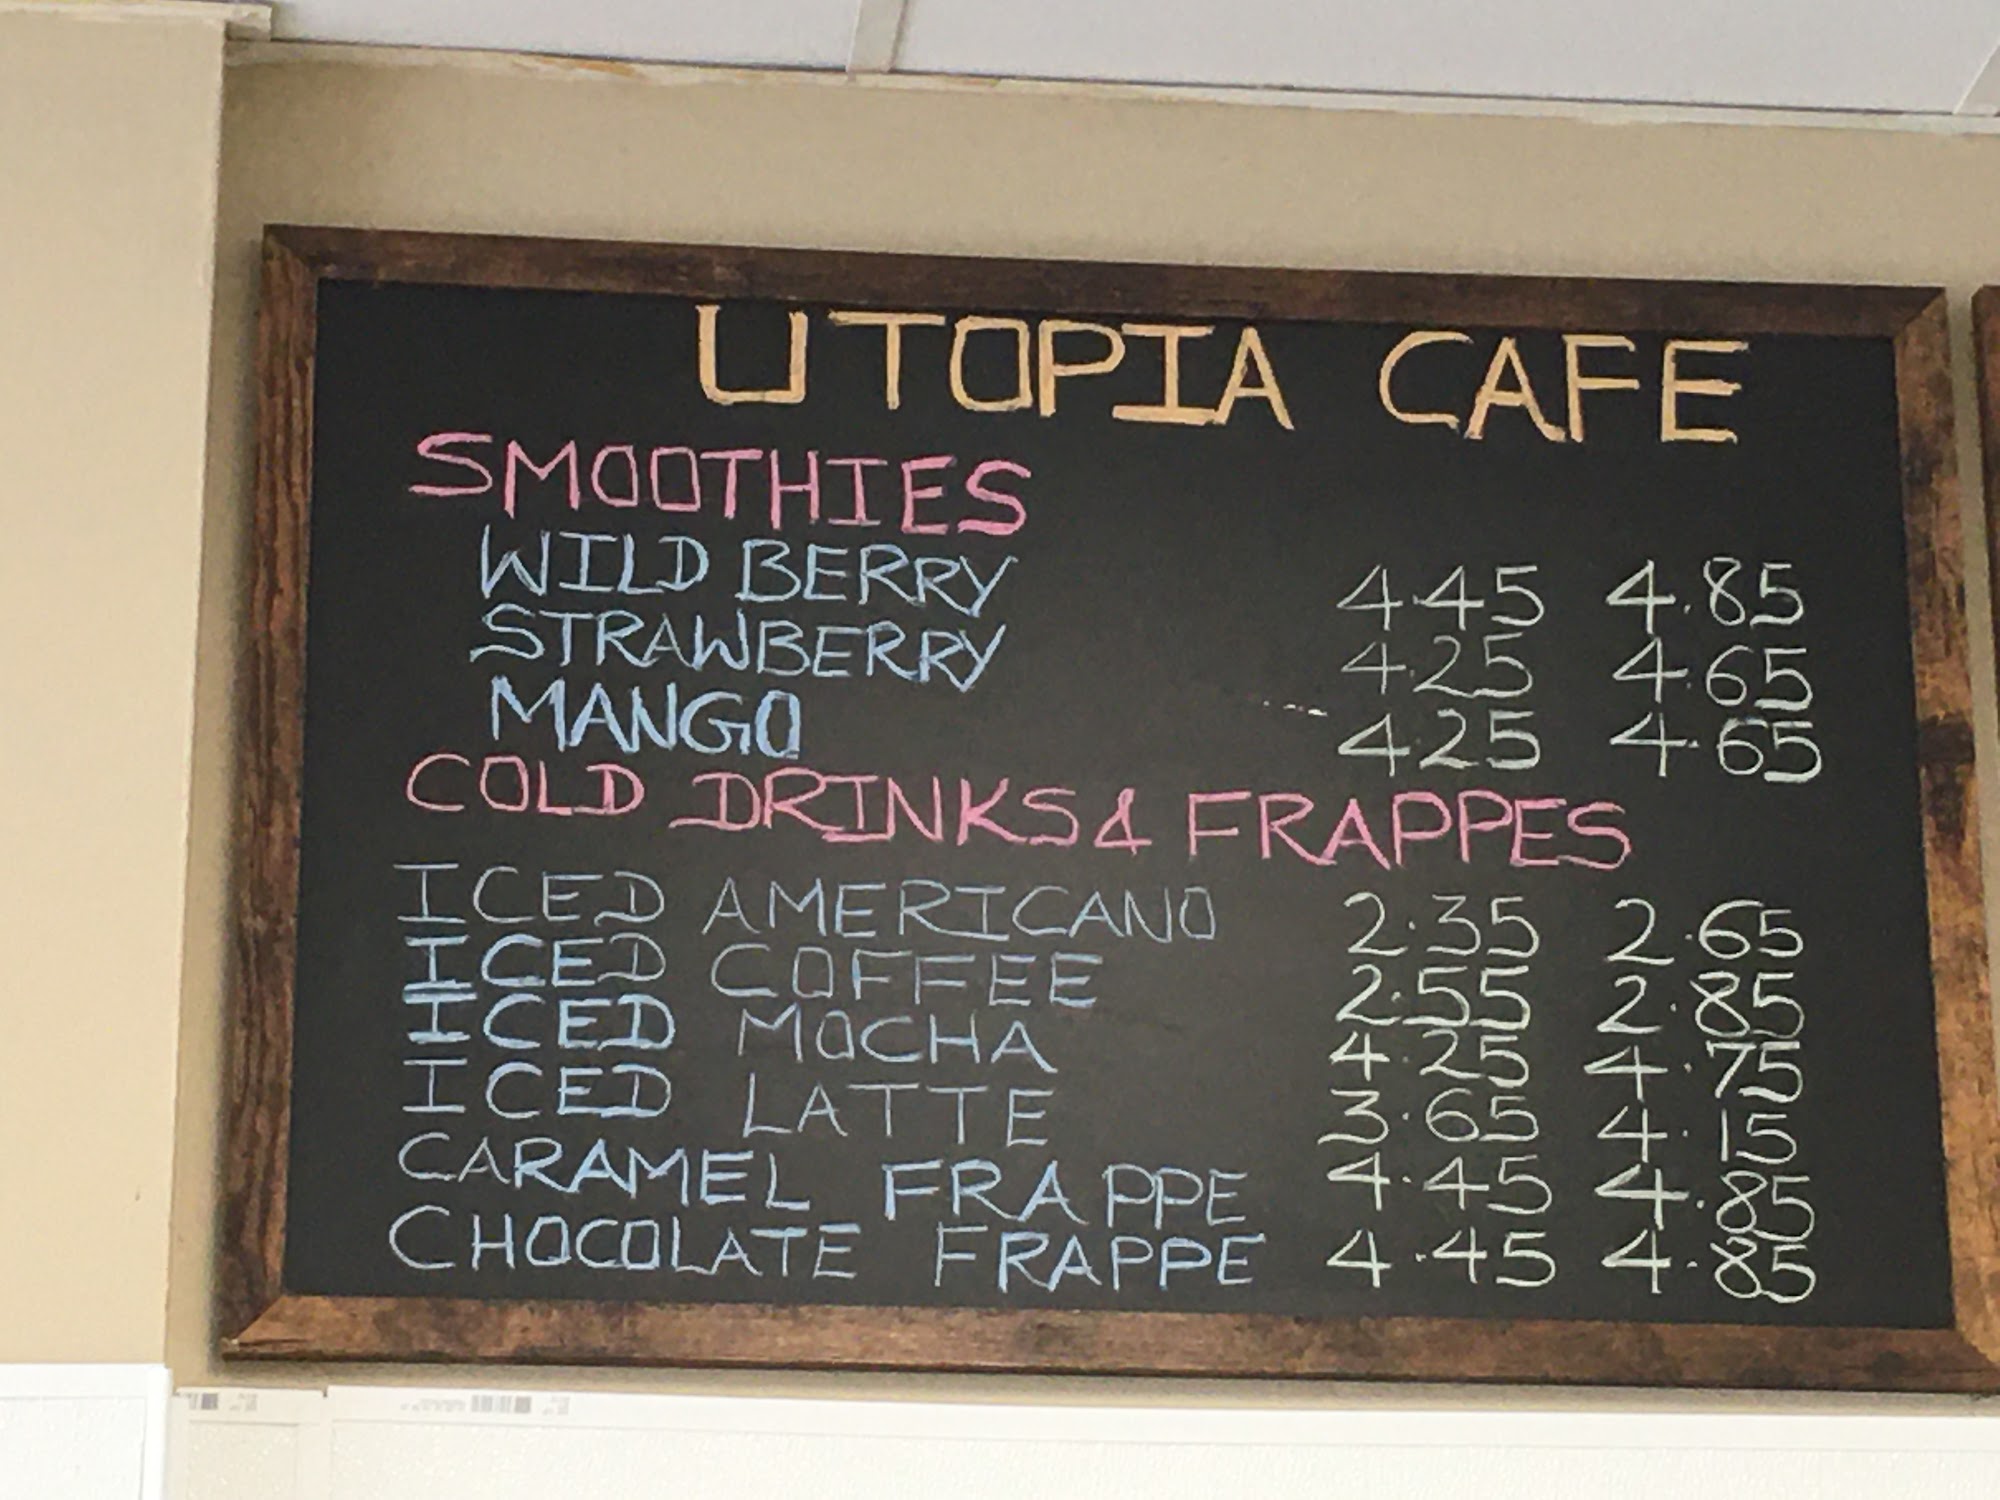 UTOPIA CAFE
SMOOTHIES
WILD BERRY 4.45 4.85
STRAWBERRY 4.25 4.65
MANGO 4.25 4.65
COLD DRINKS & FRAPPES
ICED AMERICANO 2.35 2.65
ICED COFFEE 2.55 2.85
ICED MOCHA 4.25 4.75
ICED LATTE 3.65 4.15
CARAMEL FRAPPE 4.45 4.85
CHOCOLATE FRAPPE 4.45 4.85